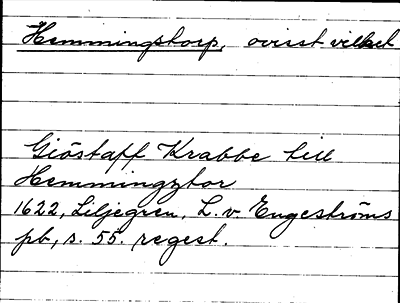 Hemmingstorp, ovisst vilket
Giöstaff Krabbe till
Hemmingztor
1622, Liljegren, L. v. Engeströms
pb, s. 55. regest.